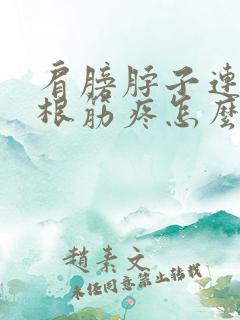 肩膀脖子連
根筋疼怎麼
趙素文
未经同意禁止转载